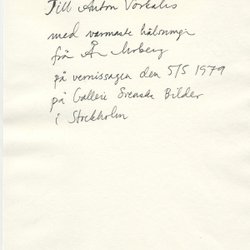 Till Anton Vorkalis
med varmaste hälsningar
från Å Moberg
på vernissagen den 5/5 1979
på Gallerie Svenska Bilder
i Stockholm